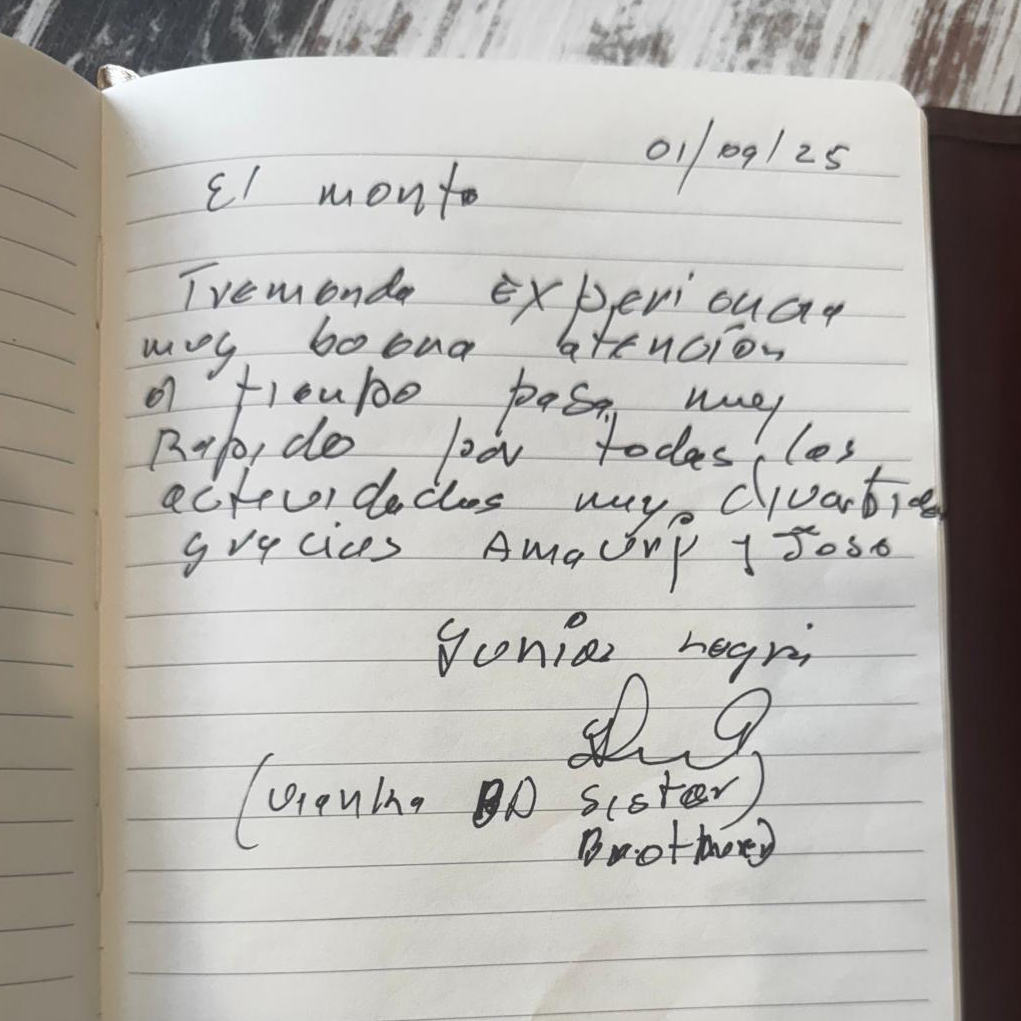 01/09/25
El monte
Tremenda Experiencia
muy buena atención
el tiempo pasa muy
Rapido por todas las
actividades muy divertida
gracias Amaury y Jose
Junior negri
BD Sister)
Brother)